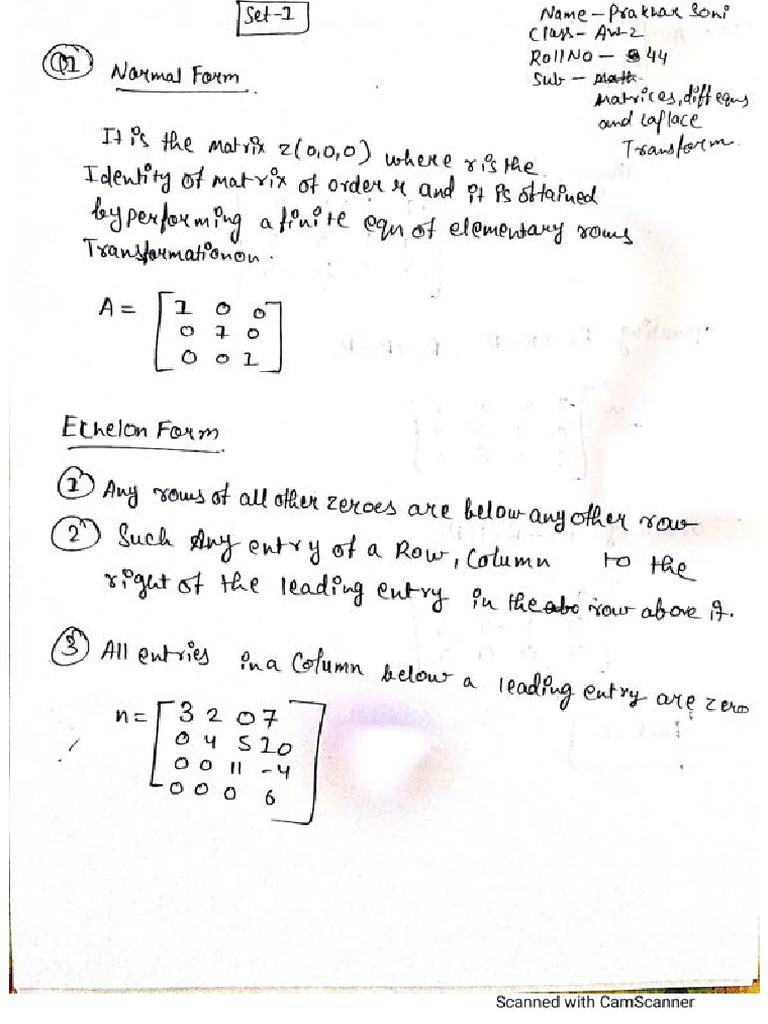 Set-1
Name - Prakhar Soni
Class - AW-2
Roll No - 44
Sub -
Matrices, diff equs
and laflace
Transform.
Q1 Normal Form
It is the matrix z(0,0,0) where r is the
Identity of matrix of order r and it is obtained
by performing a finite eqn of elementary rows
Transformationon.
A = [1 0 0
0 1 0
0 0 1]
Echelon Form
1 Any rows of all other zeroes are below any other row
2 Such Any entry of a Row, Column to the
right of the leading entry in the row above it.
3 All entries in a Column below a leading entry are zero
n = [3 2 0 7
0 4 5 10
0 0 11 -4
0 0 0 6]
Scanned with CamScanner